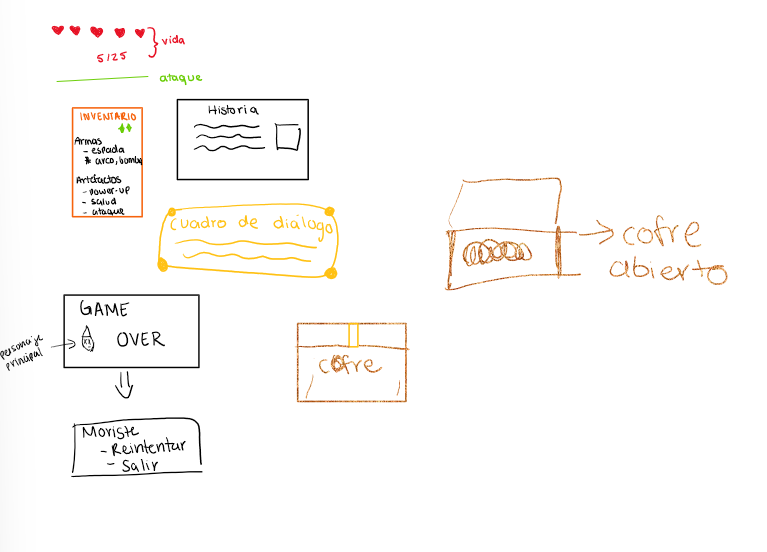 vida
5/25
ataque
INVENTARIO
Armas
- espada
* arco, bomba
Artefactos
- power-up
- salud
- ataque
Historia
Cuadro de diálogo
cofre
abierto
GAME
OVER
personaje
principal
cofre
Moriste
- Reintentar
- Salir